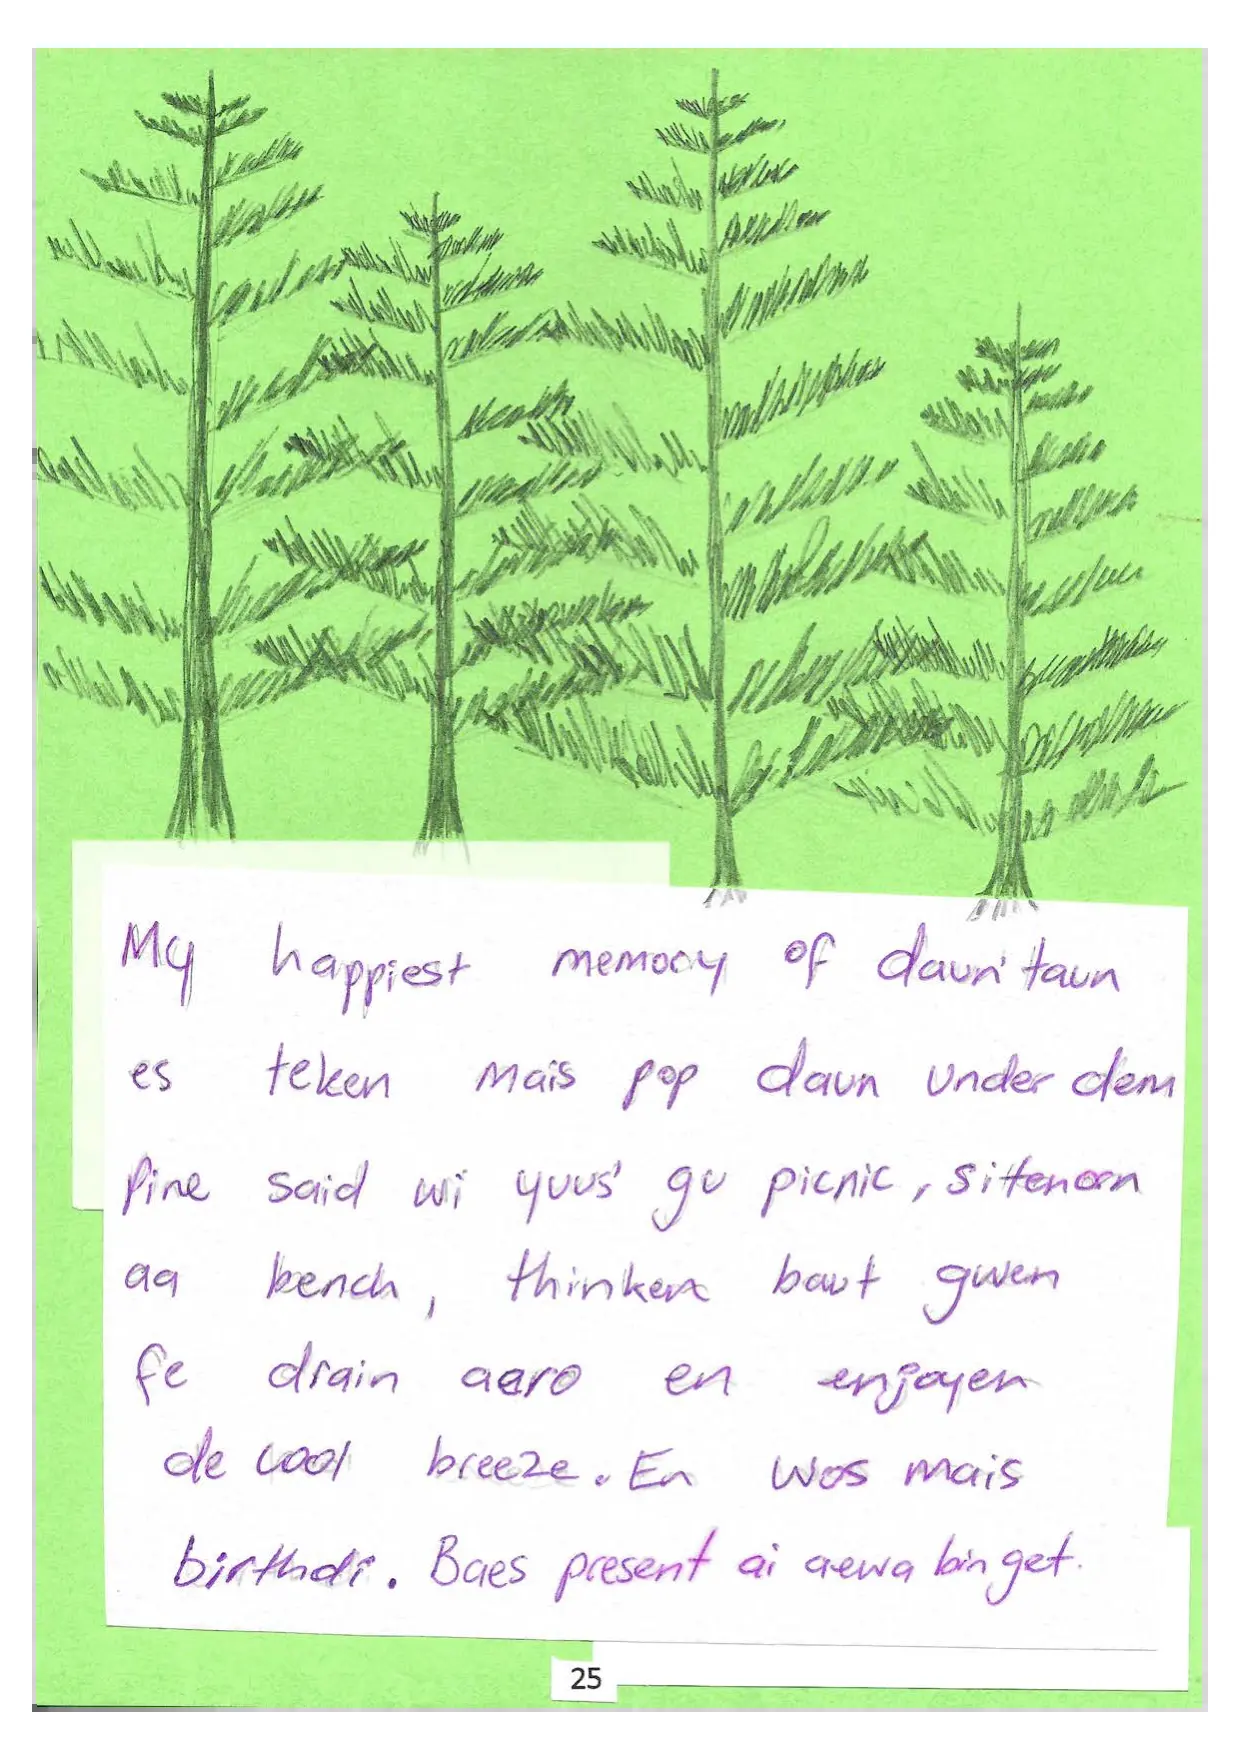 My happiest memory of daun' taun
es teken mais pop daun under dem
pine said wi yuus' gu picnic, sitten orn
aa bench, thinken baut gwen
fe drain aaro en enjoyen
de cool breeze. En wos mais
birthdi. Baes present ai aewa bin get.
25